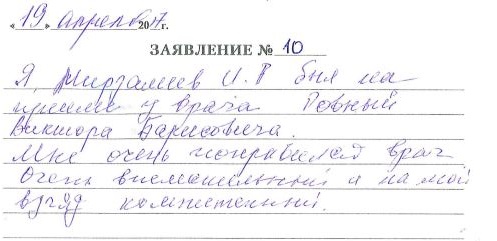 «19» апреля 2017г.
ЗАЯВЛЕНИЕ № 10
Я, Мирзалиев И.Г был на
приеме у врача Ровный
Виктора Борисовича.
Мне очень понравился врач
Очень внимательный и на мой
взгляд компетенный.